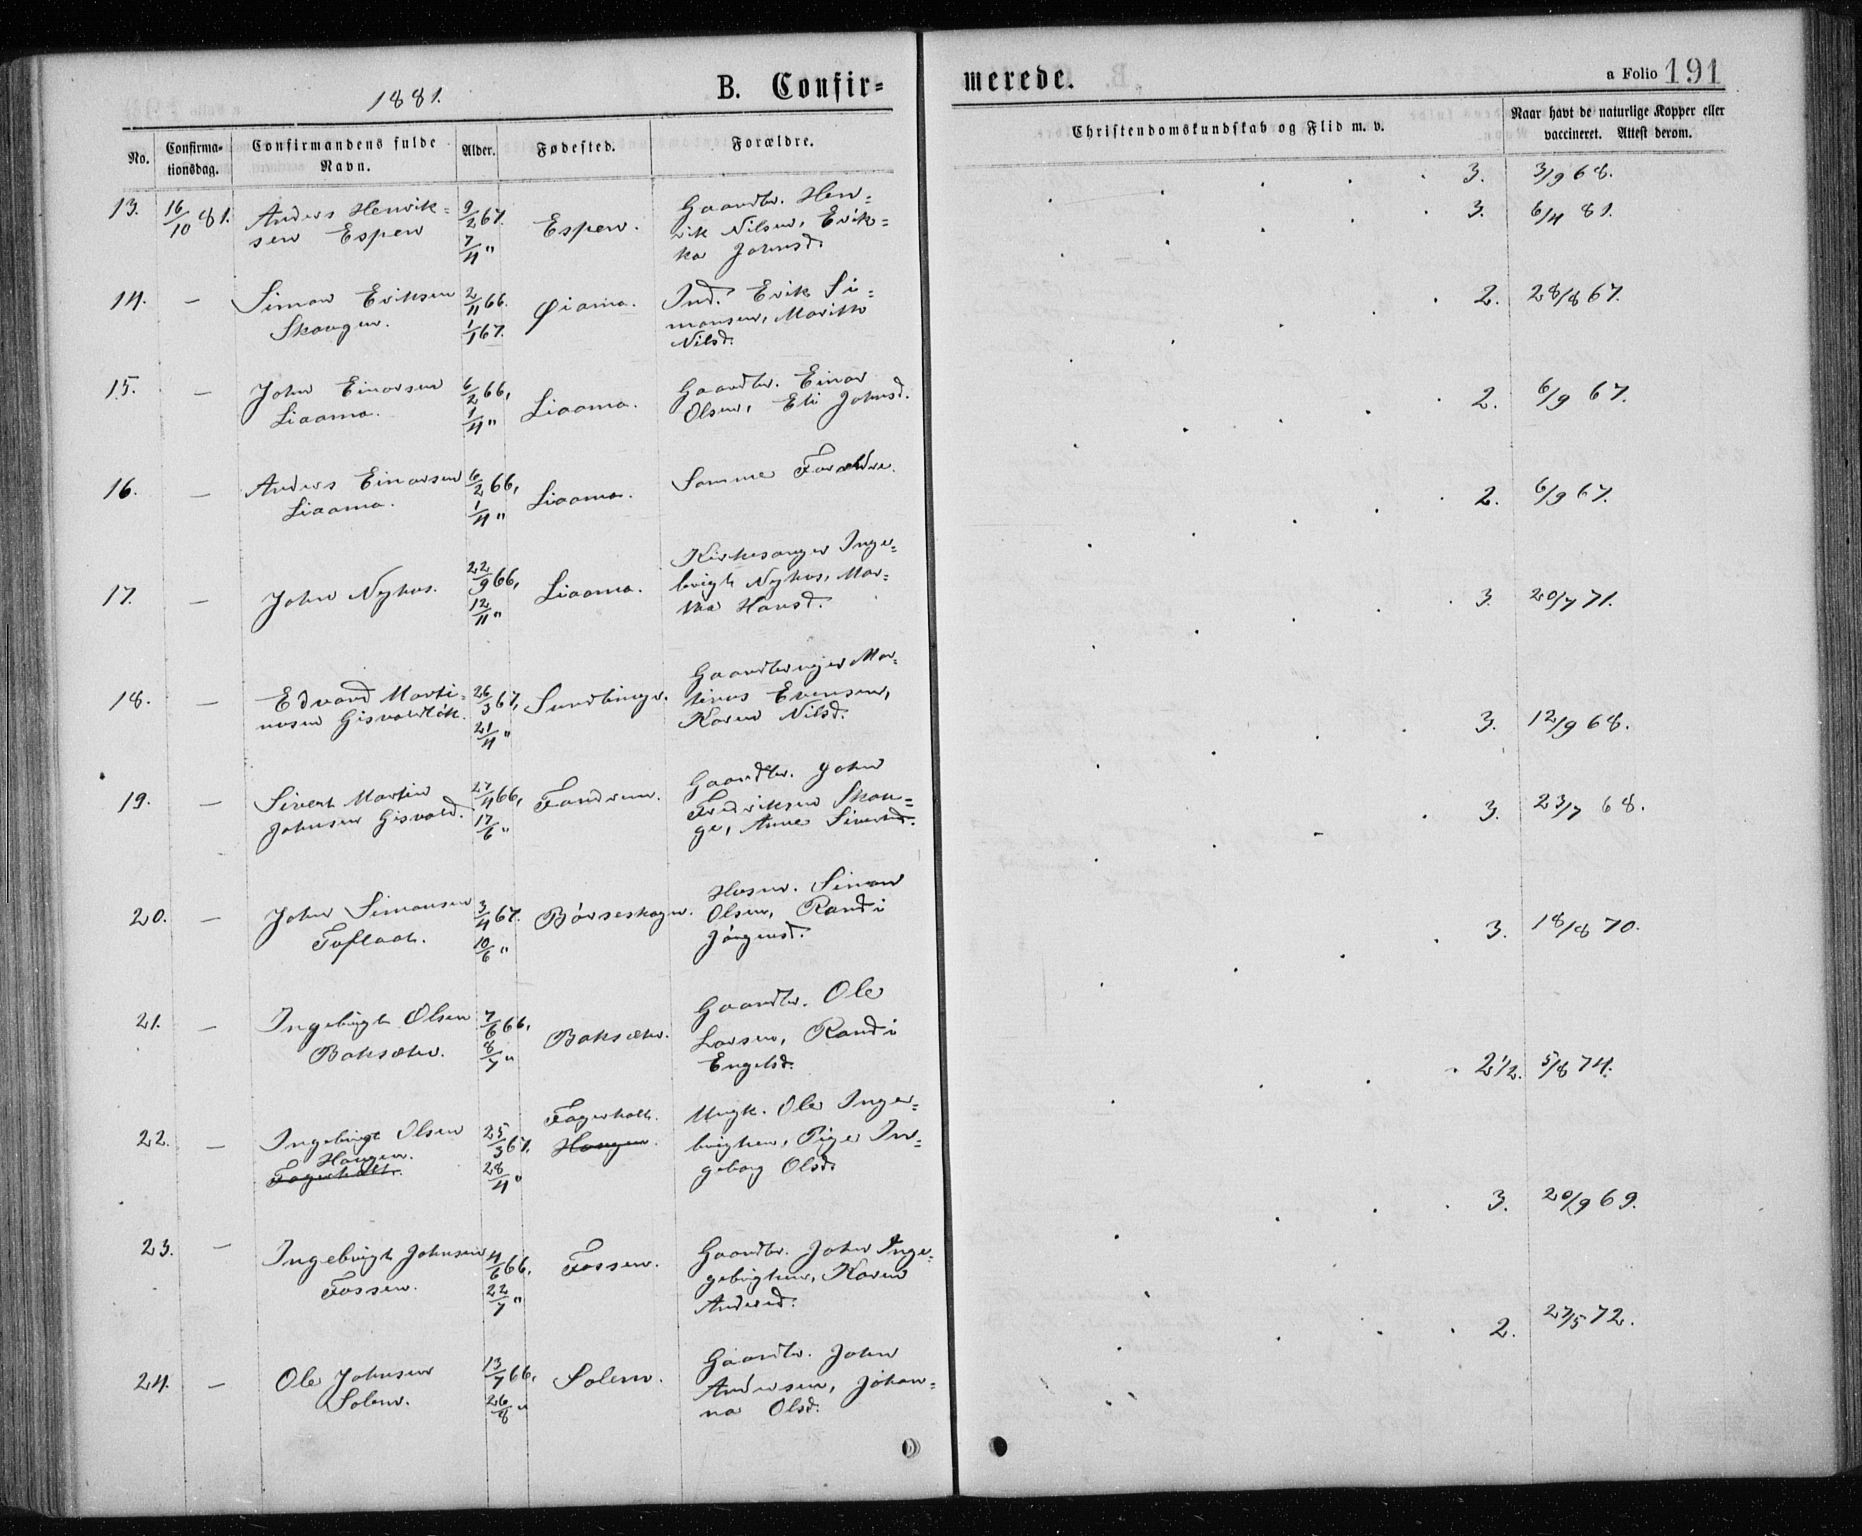 1881.
B. Confir=
merede.
a Folio 191
No.
Confirma-
tionsdag.
Confirmandens fulde
Navn.
Alder.
Fødested.
Forældre.
Christendomskundskab og Flid m. v.
Naar havt de naturlige Kopper eller
vaccineret. Attest derom.
3. 3/9 68.
13. 16/10 81. Anders Henrik= 9/2 67. Espen. Gaardbr. Hen=
sen Espen 7/4 " rik Nilsen, Erik=
ka Johnsd.
3. 6/4 81.
14. – Simon Eriksen 2/11 66. Øiama. Ind. Erik Si=
Skaugen. 1/1 67. monsen, Marith
Nilsd.
2. 28/8 67.
15. – John Einarsen 6/2 66, Liaama. Gaardbr. Einar
Liaama. 1/4 " Olsen, Eli Johnsd.
2. 6/9 67.
16. – Anders Einarsen 6/2 66, Liaama. Samme Forældre.
Liaama. 1/4 "
2. 6/9 67.
17. – John Nyhus. 22/9 66, Liaama. Kirkesanger Inge=
12/11 " brigt Nyhus, Mar=
tha Hansd.
3. 20/7 71.
18. – Edvard Marti= 26/3 67, Sundlinge. Gaardbruger Mar=
nusen Gisvoldløk. 21/4 " tinus Evensen,
Karen Nilsd.
3. 12/9 68.
19. – Sivert Martin 27/4 66, Fandrem. Gaardbr. John
Johnsen Gisvold. 17/6 " Fredriksen Skau=
ge, Anne Sivertsd.
3. 23/7 68.
20. – John Simonsen 3/4 67. Børseskogn. Husm. Simon
Toflaat. 10/6 " Olsen, Randi
Jørgensd.
3. 18/8 70.
21. – Ingebrigt Olsen 7/6 66, Baksæter. Gaardbr. Ole
Baksæter. 8/7 " Larsen, Randi
Engelsd.
2 1/2. 5/8 74.
22. – Ingebrigt Olsen 25/3 67. Fagerholt. Ungk. Ole Inge=
Haugen. Haugen. brigtsen, Pige In=
Fagerholt. 28/4 " geborg Olsd.
3. 20/9 69.
23. – Ingebrigt Johnsen 4/6 66. Fossen. Gaardbr. John Inge=
Fossen. 22/7 " gebrigtsen, Karen
Andersd.
2. 27/5 72.
24. – Ole Johnsen 13/7 66, Solem. Gaardbr. John
Solem. 26/8 " Andersen, Johan=
na Olsd.